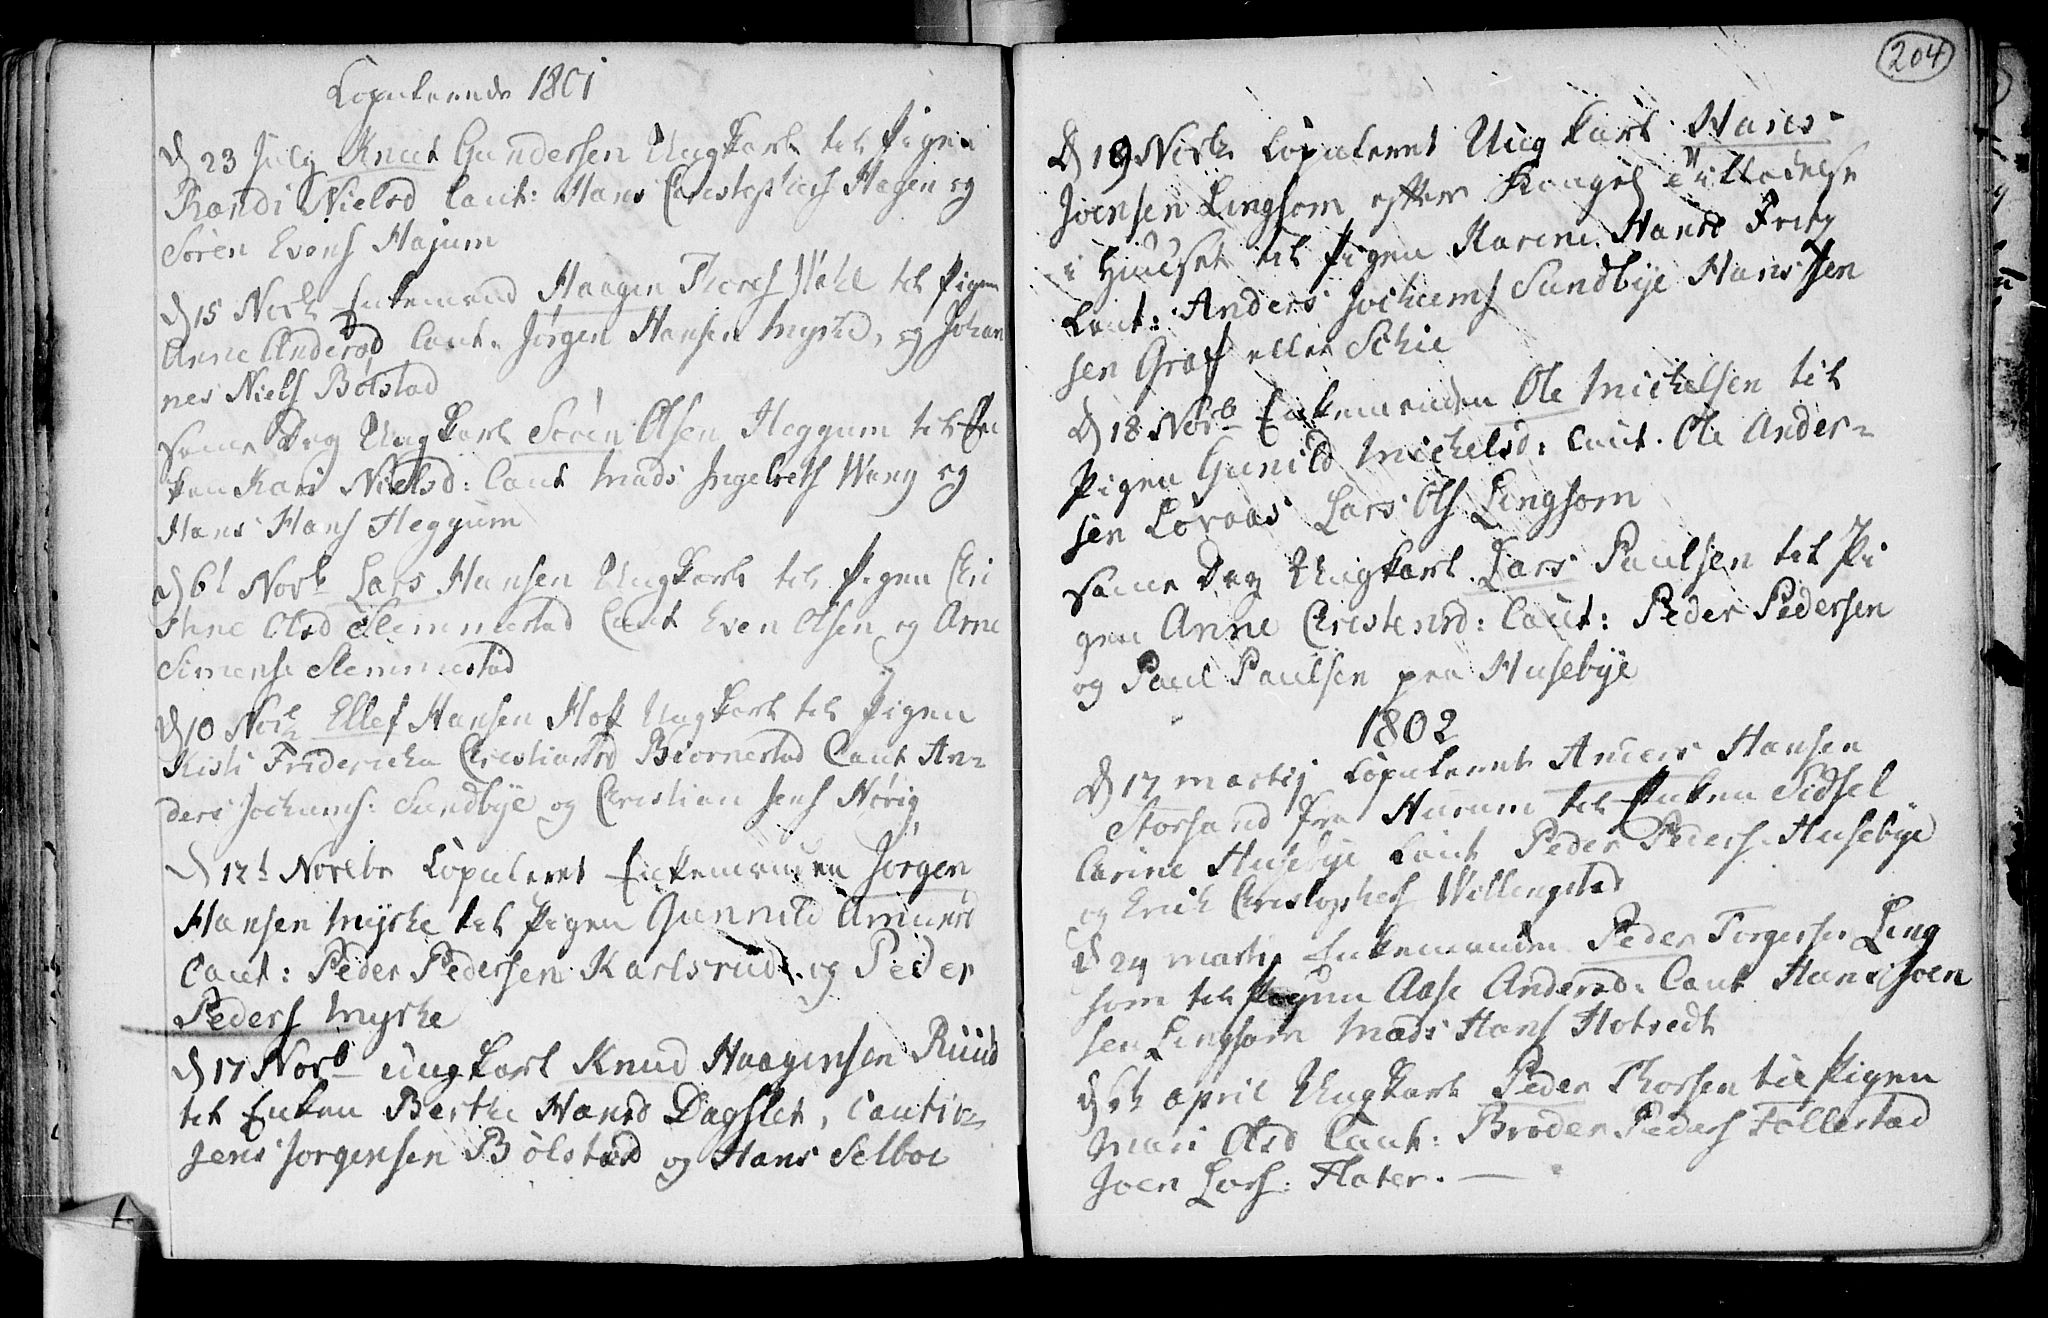 Copulerede 1801
D 23 July Knut Gundersen Ungkarl til Pigen
Randi Nielsd Caut: Hans Christophers Hagen og
Sören Evens Hajum
D 15 Novb Enkemand Haagen Thores Wehl til Pigen
Anne Andersd Caut. Jörgen Hansen Myrhe, og Johan
nes Niels Bölstad
Same Dag Ungkarl Sören Olsen Heggum til En
ken Kari Nielsd: Caut Mads Ingebreths Wang og
Hans Hans Heggum
D 6t Novb Lars Hansen Ungkarl til Pigen Chri
sthne Olsd Slemmestad Caut Even Olsen og Arne
Simens Slemmestad
D 10 Novb Ellef Hansen Hoff Ungkarl til Pigen
Kisti Fridericha Christiansd Biörnestad Caut An-
ders Jochums: Sundbye og Christian Jens Nörig
D 12t Novbr Copuleret Enkemanden Jörgen
Hansen Myrhe til Pigen Gunnild Amunds
Caut: Peder Pedersen Karlsrud og Peder
Peders Myrhe
D 17 Novb Ungkarl Knud Haagensen Ruud
til Enken Berthe Hansd Dagslet, Cautio
Jens Jorgensen Bölstad og Hans Selboe
204
D 19 Novb Copuleret Ungkarl Hans
Joensen Lingsom efter Kongel Tilladelse
i Huuset til Pigen Karen Hansd Frög
Caut: Anders Jochums Sundbye Hans Jen
sen Graf eller Schie
D 18 Novb Enkemanden Ole Michelsen til
Pigen Gunild Michelsd: Caut. Ole Ander-
sen Lovaas Lars Ols Lingsom
Same Dag Ungkarl Lars Paulsen til Pi
gen Anne Christensd: Caut: Peder Pedersen
og Paul Paulsen paa Husebye
1802
D 17 Martij Copuleret Anders Hansen
Storsand fra Hurum til Enken Sidsel
Carine Husebye Caut Peder Peders. Husebye
og Erich Christophers Willengstad
D 24 Martij Enkemanden Peder Torgersen Ling
som til Pigen Aase Andersd. Caut Hans Joen
sen Lingsom Mads Hans Hotvedt
D 5h April Ungkarl Peder Thorsen til Pigen
Mari Olsd Caut: Broder Peders Follestad
Joen Lars: Flater.